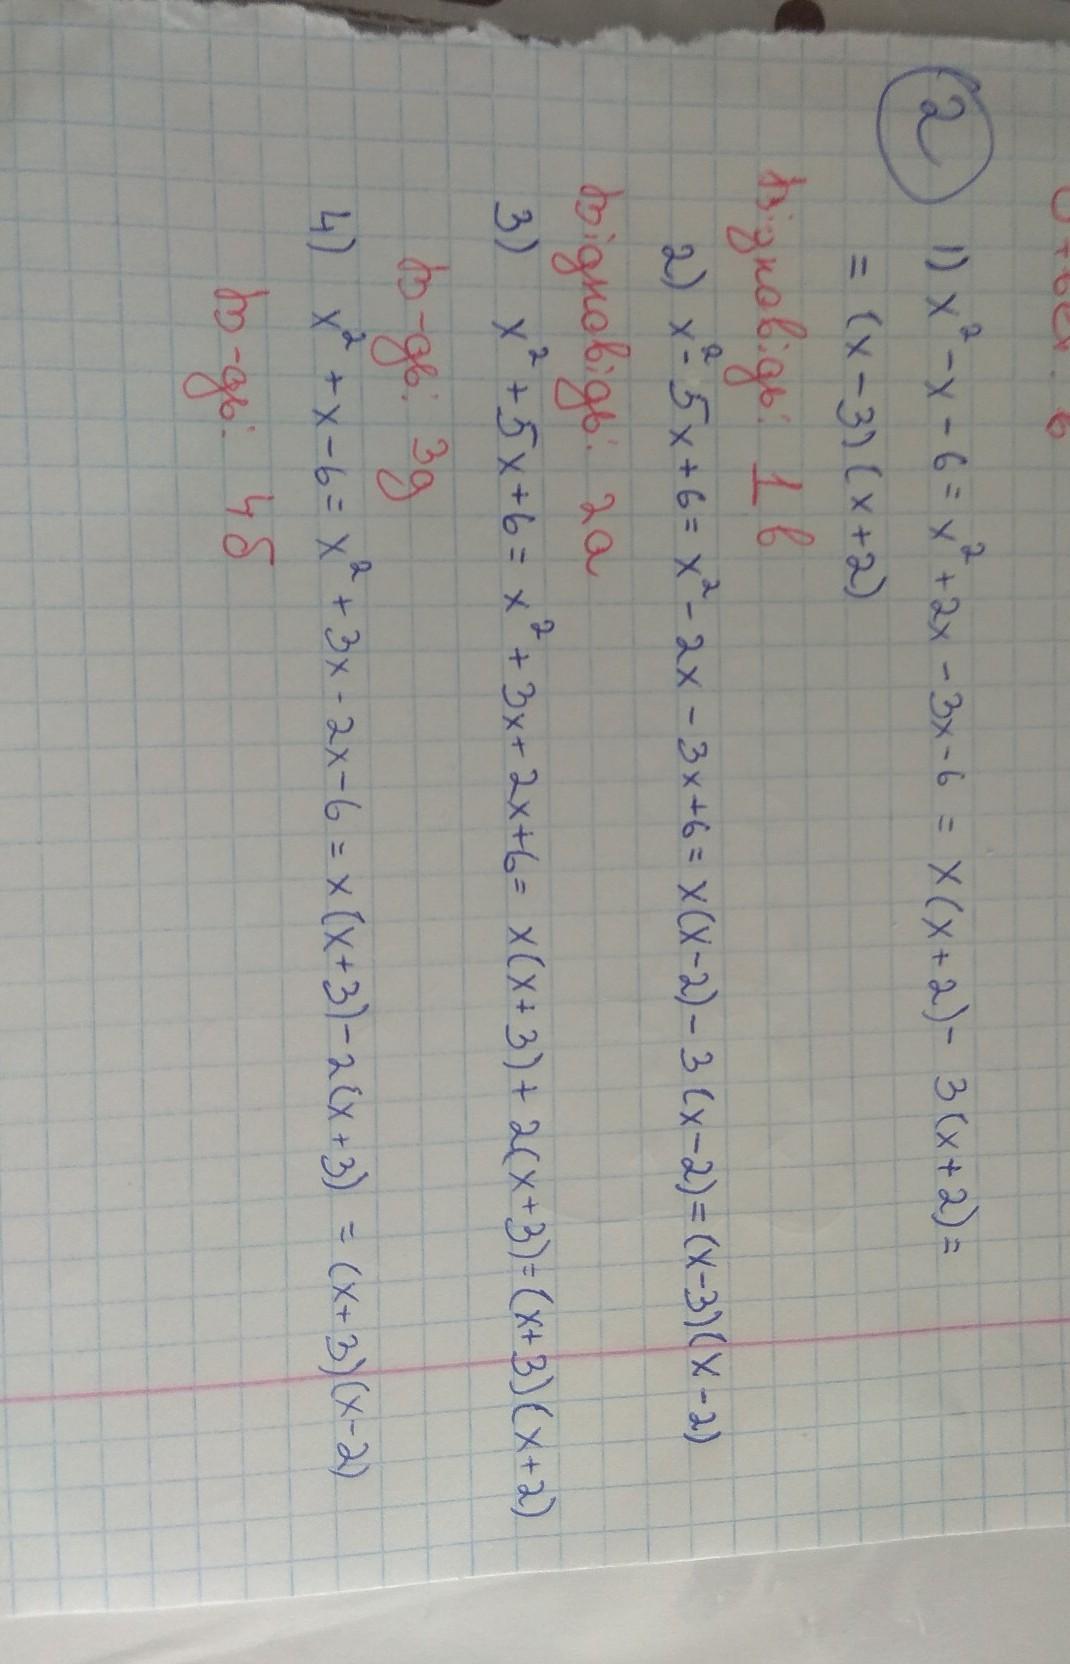 2
1) x² - x - 6 = x² + 2x - 3x - 6 = x(x+2) - 3(x+2) =
= (x-3)(x+2)
відповідь: 1в
2) x² - 5x + 6 = x² - 2x - 3x + 6 = x(x-2) - 3(x-2) = (x-3)(x-2)
відповідь: 2а
3) x² + 5x + 6 = x² + 3x + 2x + 6 = x(x+3) + 2(x+3) = (x+3)(x+2)
в-дь: 3д
4) x² + x - 6 = x² + 3x - 2x - 6 = x(x+3) - 2(x+3) = (x+3)(x-2)
в-дь: 4б